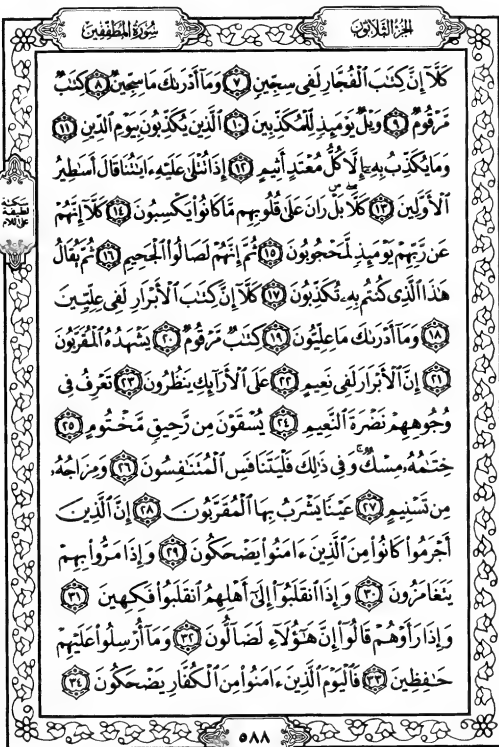 الجزء الثلاثون
سورة المطففين
كَلَّآ إِنَّ كِتَٰبَ ٱلْفُجَّارِ لَفِى سِجِّينٍ ٧ وَمَآ أَدْرَىٰكَ مَا سِجِّينٌ ٨ كِتَٰبٌ
مَّرْقُومٌ ٩ وَيْلٌ يَوْمَئِذٍ لِّلْمُكَذِّبِينَ ١٠ ٱلَّذِينَ يُكَذِّبُونَ بِيَوْمِ ٱلدِّينِ ١١
وَمَا يُكَذِّبُ بِهِۦٓ إِلَّا كُلُّ مُعْتَدٍ أَثِيمٍ ١٢ إِذَا تُتْلَىٰ عَلَيْهِ ءَايَٰتُنَا قَالَ أَسَٰطِيرُ
ٱلْأَوَّلِينَ ١٣ كَلَّا بَلْ رَانَ عَلَىٰ قُلُوبِهِم مَّا كَانُوا۟ يَكْسِبُونَ ١٤ كَلَّآ إِنَّهُمْ
عَن رَّبِّهِمْ يَوْمَئِذٍ لَّمَحْجُوبُونَ ١٥ ثُمَّ إِنَّهُمْ لَصَالُوا۟ ٱلْجَحِيمِ ١٦ ثُمَّ يُقَالُ
هَٰذَا ٱلَّذِى كُنتُم بِهِۦ تُكَذِّبُونَ ١٧ كَلَّآ إِنَّ كِتَٰبَ ٱلْأَبْرَارِ لَفِى عِلِّيِّينَ
١٨ وَمَآ أَدْرَىٰكَ مَا عِلِّيُّونَ ١٩ كِتَٰبٌ مَّرْقُومٌ ٢٠ يَشْهَدُهُ ٱلْمُقَرَّبُونَ
٢١ إِنَّ ٱلْأَبْرَارَ لَفِى نَعِيمٍ ٢٢ عَلَى ٱلْأَرَآئِكِ يَنظُرُونَ ٢٣ تَعْرِفُ فِى
وُجُوهِهِمْ نَضْرَةَ ٱلنَّعِيمِ ٢٤ يُسْقَوْنَ مِن رَّحِيقٍ مَّخْتُومٍ ٢٥
خِتَٰمُهُۥ مِسْكٌ وَفِى ذَٰلِكَ فَلْيَتَنَافَسِ ٱلْمُتَنَٰفِسُونَ ٢٦ وَمِزَاجُهُۥ
مِن تَسْنِيمٍ ٢٧ عَيْنًا يَشْرَبُ بِهَا ٱلْمُقَرَّبُونَ ٢٨ إِنَّ ٱلَّذِينَ
أَجْرَمُوا۟ كَانُوا۟ مِنَ ٱلَّذِينَ ءَامَنُوا۟ يَضْحَكُونَ ٢٩ وَإِذَا مَرُّوا۟ بِهِمْ
يَتَغَامَزُونَ ٣٠ وَإِذَا ٱنقَلَبُوٓا۟ إِلَىٰٓ أَهْلِهِمُ ٱنقَلَبُوا۟ فَكِهِينَ ٣١
وَإِذَا رَأَوْهُمْ قَالُوٓا۟ إِنَّ هَٰٓؤُلَآءِ لَضَآلُّونَ ٣٢ وَمَآ أُرْسِلُوا۟ عَلَيْهِمْ
حَٰفِظِينَ ٣٣ فَٱلْيَوْمَ ٱلَّذِينَ ءَامَنُوا۟ مِنَ ٱلْكُفَّارِ يَضْحَكُونَ ٣٤
سكتة
لطيفة
على اللام
٥٨٨